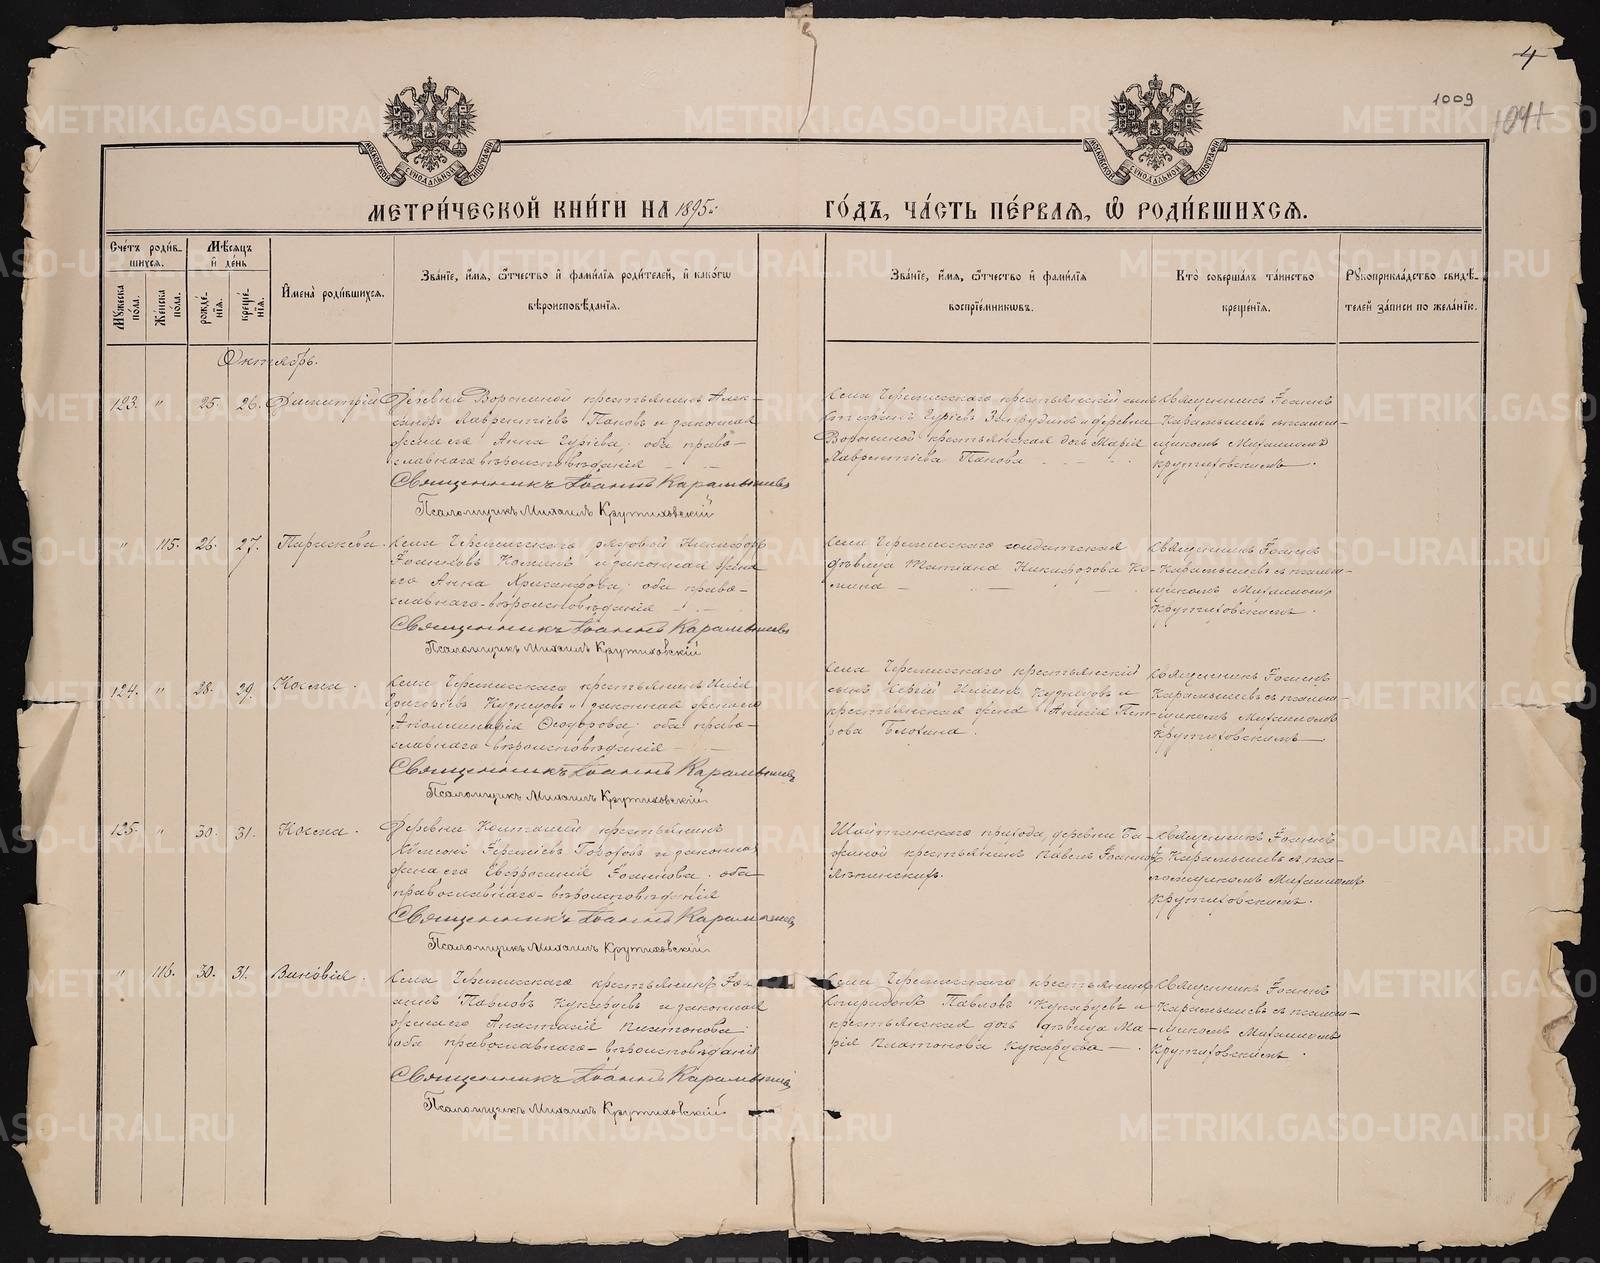 4
1009
МЕТРИ́ЧЕСКОЙ КНИ́ГИ НА 1895й ГО́ДЪ, ЧА́СТЬ ПЕ́РВАѦ, Ѡ҆ РОДИ́ВШИХСѦ.
Сче́тъ роди́в-
шихсѧ.
Мѣ́сѧцъ
и҆ де́нь
Мꙋ́жеска
по́ла.
Же́нска
по́ла.
рожде́-
нїѧ.
креще́-
нїѧ.
И҆мена̀ роди́вшихсѧ.
Зва́нїе, и҆́мѧ, ѻ҆́тчество и҆ фами́лїѧ роди́телей, и҆ како́гѡ
вѣроисповѣ́данїѧ.
Зва́нїе, и҆́мѧ, ѻ҆́тчество и҆ фами́лїѧ
воспрїе́мниковъ.
Кто̀ соверша́лъ та́инство
креще́нїѧ.
Рꙋкоприкла́дство свидѣ́-
телей за́писи по жела́нїю.
Октябрь.
123. " 25. 26. Димитрій
Деревни Ворониной крестьянинъ Алек-
сандръ Лаврентіевъ Пановъ и законная
жена его Анна Гуріева; оба право-
славнаго вѣроисповѣданія
Священникъ Іоаннъ Карамышевъ
Псаломщикъ Михаилъ Крутиховскій
Села Черемисскаго крестьянскій сынъ
Гуріевъ и деревни
Ворониной крестьянская дочь Марія
Лаврентіева Панова
Священникъ Іоаннъ
Карамышевъ съ псалом-
щикомъ Михаиломъ
Крутиховскимъ.
" 115. 26. 27. Параскева.
Села Черемисскаго рядовой Никифоръ
Іоакимовъ Коминъ и законная жена
его Анна Хрисанфова; оба право-
славнаго вѣроисповѣданія
Священникъ Іоаннъ Карамышевъ
Псаломщикъ Михаилъ Крутиховскій
Села Черемисскаго солдатская
дѣвица Татіана Никифорова Ко-
мина
Священникъ Іоаннъ
Карамышевъ съ псалом-
щикомъ Михаиломъ
Крутиховскимъ.
124. " 28. 29. Косма.
Села Черемисскаго крестьянинъ Илія
Григоріевъ Кузнецовъ и законная жена его
Аполлинарія Ѳеодорова; оба право-
славнаго вѣроисповѣданія
Священникъ Іоаннъ Карамышевъ
Псаломщикъ Михаилъ Крутиховскій
Села Черемисскаго крестьянскій
сынъ Сергій Иліинъ Кузнецовъ и
крестьянская жена Анисія Пет-
рова Блохина.
Священникъ Іоаннъ
Карамышевъ съ псалом-
щикомъ Михаиломъ
Крутиховскимъ
125. " 30. 31. Косма.
Деревни крестьянинъ
Симеонъ Іереміевъ и законная
жена его Евфросинія Іоакимова. оба
православнаго вѣроисповѣданія
Священникъ Іоаннъ Карамышевъ
Псаломщикъ Михаилъ Крутиховскій
Шайтанскаго прихода, деревни
крестьянинъ Павелъ Іоанновъ
Священникъ Іоаннъ
Карамышевъ съ пса-
ломщикомъ Михаиломъ
Крутиховскимъ.
" 116. 30. 31. Зиновія
Села Черемисскаго крестьянинъ Іо-
аннъ Павловъ Кукарцевъ и законная
жена его Анастасія Платонова
оба православнаго вѣроисповѣданія
Священникъ Іоаннъ Карамышевъ
Псаломщикъ Михаилъ Крутиховскій
Села Черемисскаго крестьянинъ
Спиридонъ Павловъ Кукарцевъ и
крестьянская дочь дѣвица Ма-
рія Платонова Кукарцева
Священникъ Іоаннъ
Карамышевъ съ псалом-
щикомъ Михаиломъ
Крутиховскимъ.
METRIKI.GASO-URAL.RU